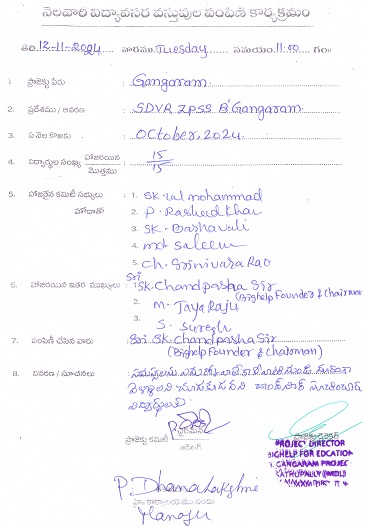 నెలవారి విద్యావసర వస్తువుల పంపిణి కార్యక్రమం
తేది.12-11-2024 వారము.Tuesday సమయం.11:00 గం॥
1 ప్రాజెక్టు పేరు : Gangaram
2. ప్రదేశము / ఆవరణ : SDVR ZPSS B' Gangaram.
3. ఏ నెల కొఱకు : October, 2024
4. విద్యార్థుల సంఖ్య హాజరయిన / మొత్తము : 15/15
5. హాజరైన కమిటీ సభ్యులు హోదాతో : 1. SK. Lal mohammad
2. P. Rasheed khan
3. SK. Bashavali
4. md saleem
5. Ch. Srinivasa Rao
6. హాజరయిన ఇతర ముఖ్యులు : 1. Sri SK. Chandpasha Sir
(Bighelp Founder & Chairman)
2. M. Jaya Raju
3. S. Suresh
7. పంపిణి చేసిన వారు : Sri SK. Chandpasha Sir
(Bighelp Founder & Chairman)
8. వివరణ / సూచనలు :
ప్రాజెక్టు కమిటి
ప్రాజెక్టు డైరెక్టర్
PROJECT DIRECTOR
BIGHELP FOR EDCATION
GANGARAM PROJEC
SATHUPALLY (MNDL)
P. Dhanalakshmi
Manoju